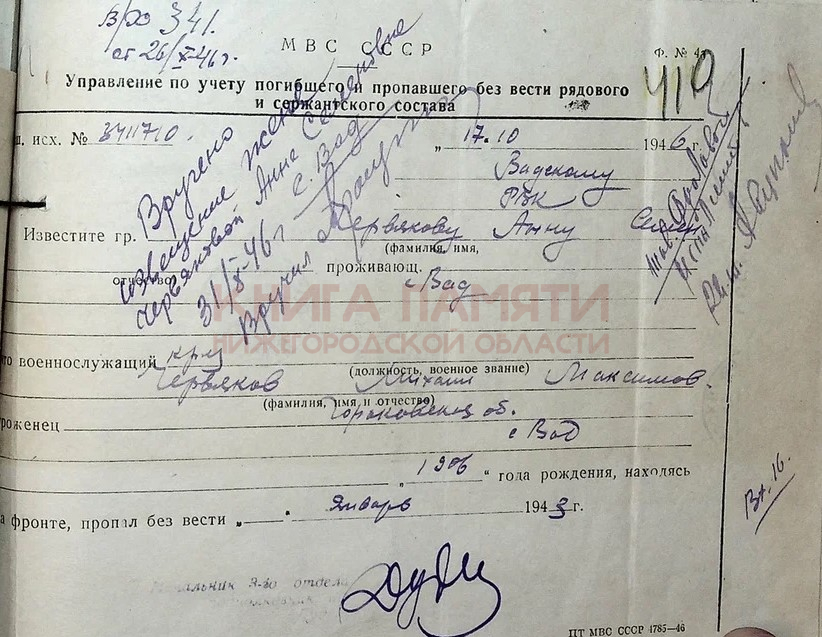 в/х 341.
от 26/X-46 г.
МВС СССР
Ф. № 4
Управление по учету погибшего и пропавшего без вести рядового
и сержантского состава
419
исх. № 3411710
„17.10 1946 г.
Вадскому
РВК
Вручено
извещение жене
Червяковой Анне Семеновне
с. Вад
31/X-46 г
Вручил
Известите гр. Червякову Анну Семен
(фамилия, имя,
отчество)
проживающ.
с Вад
КНИГА ПАМЯТИ
НИЖЕГОРОДСКОЙ ОБЛАСТИ
то военнослужащий кр-ц
(должность, военное звание)
Червяков Михаил Максимов.
(фамилия, имя и отчество)
роженец Горьковской об.
с Вад
„1906“ года рождения, находясь
а фронте, пропал без вести „—“ январь 1943 г.
Вх. 16.
Начальник 3-го отдела
ПТ МВС СССР 4785—46